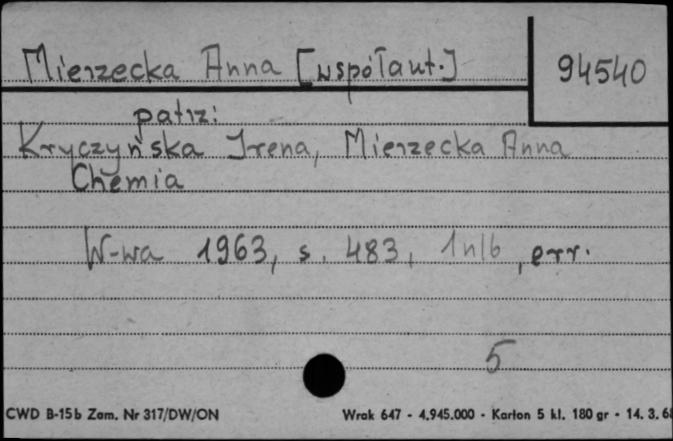 Mierzecka Anna [współaut.]
94540
patrz:
Kryczyńska Irena, Mierzecka Anna
Chemia
W-wa 1963, s. 483, 1nlb, err.
5
CWD B-15b Zam. Nr 317/DW/ON
Wrak 647 - 4.945.000 - Karton 5 kl. 180 gr - 14. 3. 68